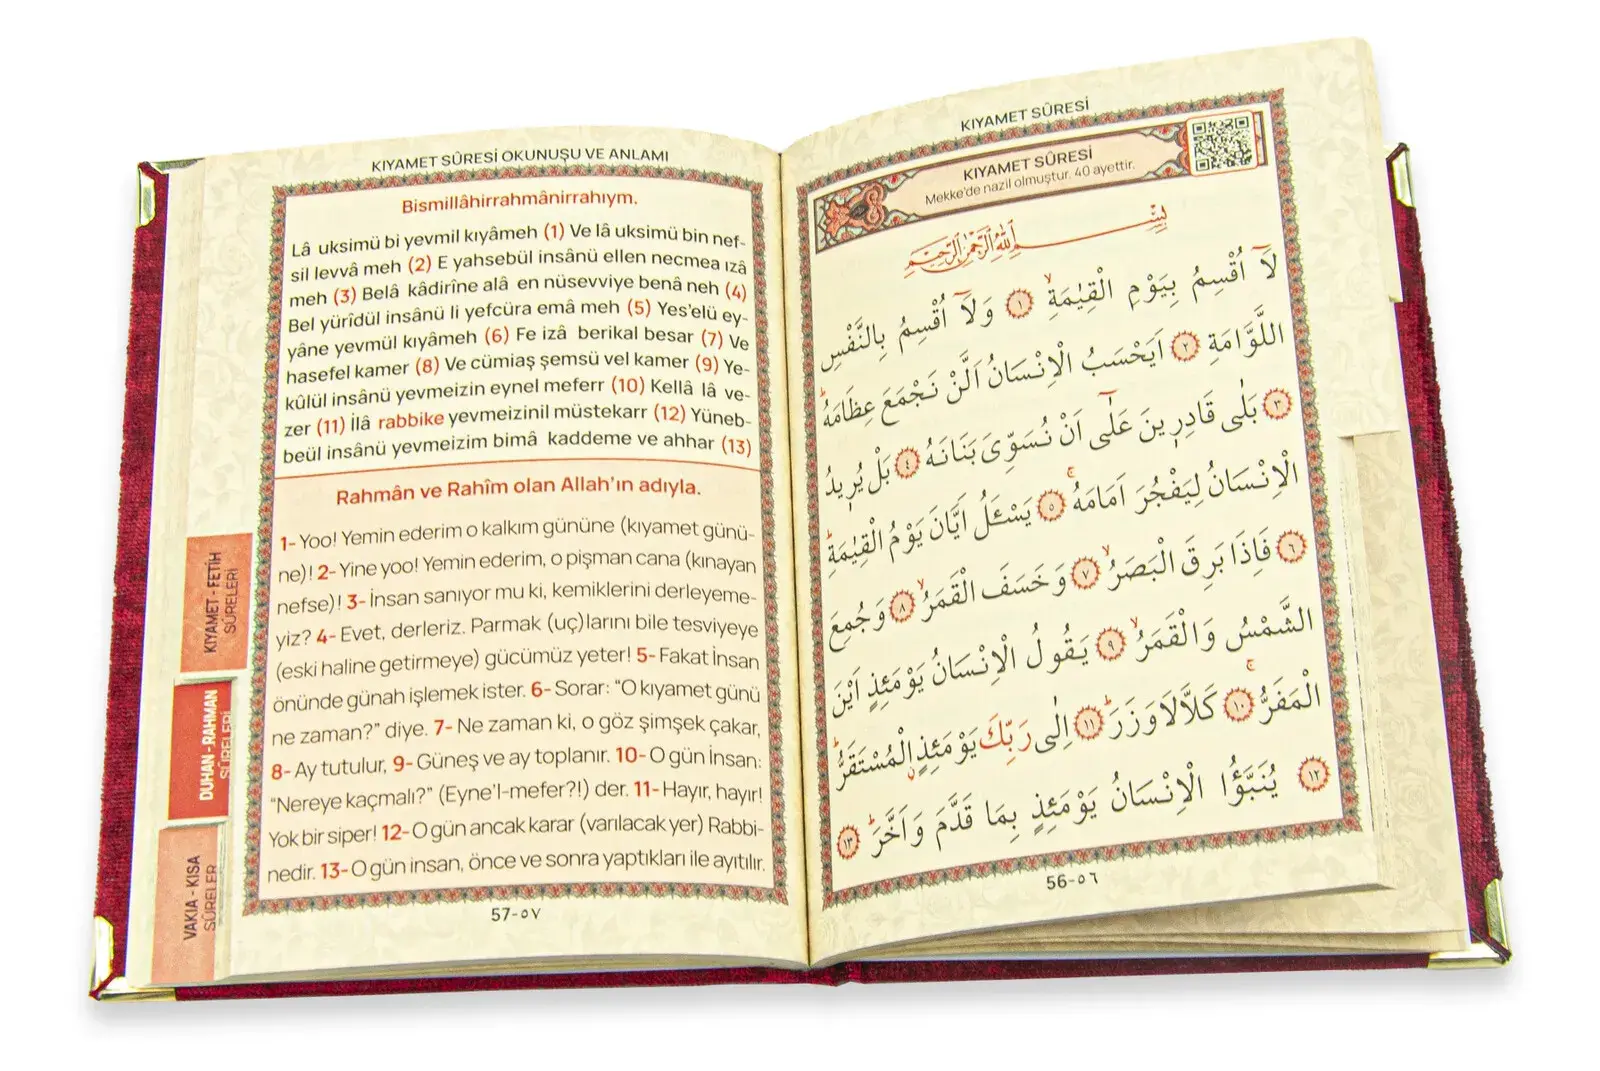 KIYAMET SÛRESİ
KIYAMET SÛRESİ
Mekke'de nazil olmuştur. 40 ayettir.
بِسْمِ اللّٰهِ الرَّحْمٰنِ الرَّحٖيمِ
لَٓا اُقْسِمُ بِيَوْمِ الْقِيٰمَةِۙ ١ وَلَٓا اُقْسِمُ بِالنَّفْسِ
اللَّوَّامَةِ ٢ اَيَحْسَبُ الْاِنْسَانُ اَلَّنْ نَجْمَعَ عِظَامَهُؕ
٣ بَلٰى قَادِرٖينَ عَلٰٓى اَنْ نُسَوِّىَ بَنَانَهُ ٤ بَلْ يُرٖيدُ
الْاِنْسَانُ لِيَفْجُرَ اَمَامَهُۚ ٥ يَسْـَٔلُ اَيَّانَ يَوْمُ الْقِيٰمَةِؕ
٦ فَاِذَا بَرِقَ الْبَصَرُۙ ٧ وَخَسَفَ الْقَمَرُۙ ٨ وَجُمِعَ
الشَّمْسُ وَالْقَمَرُۙ ٩ يَقُولُ الْاِنْسَانُ يَوْمَئِذٍ اَيْنَ
الْمَفَرُّۚ ١٠ كَلَّا لَا وَزَرَؕ ١١ اِلٰى رَبِّكَ يَوْمَئِذٍ الْمُسْتَقَرُّؕ
١٢ يُنَبَّؤُا الْاِنْسَانُ يَوْمَئِذٍ بِمَا قَدَّمَ وَاَخَّرَؕ ١٣
56-٥٦
KIYAMET SÛRESİ OKUNUŞU VE ANLAMI
Bismillâhirrahmânirrahıym.
Lâ uksimü bi yevmil kıyâmeh (1) Ve lâ uksimü bin nef-
sil levvâ meh (2) E yahsebül insânü ellen necmea ızâ
meh (3) Belâ kâdirîne alâ en nüsevviye benâ neh (4)
Bel yürîdül insânü li yefcüra emâ meh (5) Yes'elü ey-
yâne yevmül kıyâmeh (6) Fe izâ berikal besar (7) Ve
hasefel kamer (8) Ve cümiaş şemsü vel kamer (9) Ye-
kûlül insânü yevmeizin eynel meferr (10) Kellâ lâ ve-
zer (11) İlâ rabbike yevmeizinil müstekarr (12) Yüneb-
beül insânü yevmeizim bimâ kaddeme ve ahhar (13)
Rahmân ve Rahîm olan Allah'ın adıyla.
1- Yoo! Yemin ederim o kalkım gününe (kıyamet günü-
ne)! 2- Yine yoo! Yemin ederim, o pişman cana (kınayan
nefse)! 3- İnsan sanıyor mu ki, kemiklerini derleyeme-
yiz? 4- Evet, derleriz. Parmak (uç)larını bile tesviyeye
(eski haline getirmeye) gücümüz yeter! 5- Fakat İnsan
önünde günah işlemek ister. 6- Sorar: "O kıyamet günü
ne zaman?" diye. 7- Ne zaman ki, o göz şimşek çakar,
8- Ay tutulur, 9- Güneş ve ay toplanır. 10- O gün İnsan:
"Nereye kaçmalı?" (Eyne'l-mefer?!) der. 11- Hayır, hayır!
Yok bir siper! 12- O gün ancak karar (varılacak yer) Rabbi-
nedir. 13- O gün insan, önce ve sonra yaptıkları ile ayıtılır.
57-٥٧
KIYAMET - FETİH
SÛRELERİ
DUHAN - RAHMAN
SÛRELERİ
VAKIA - KISA
SÛRELER